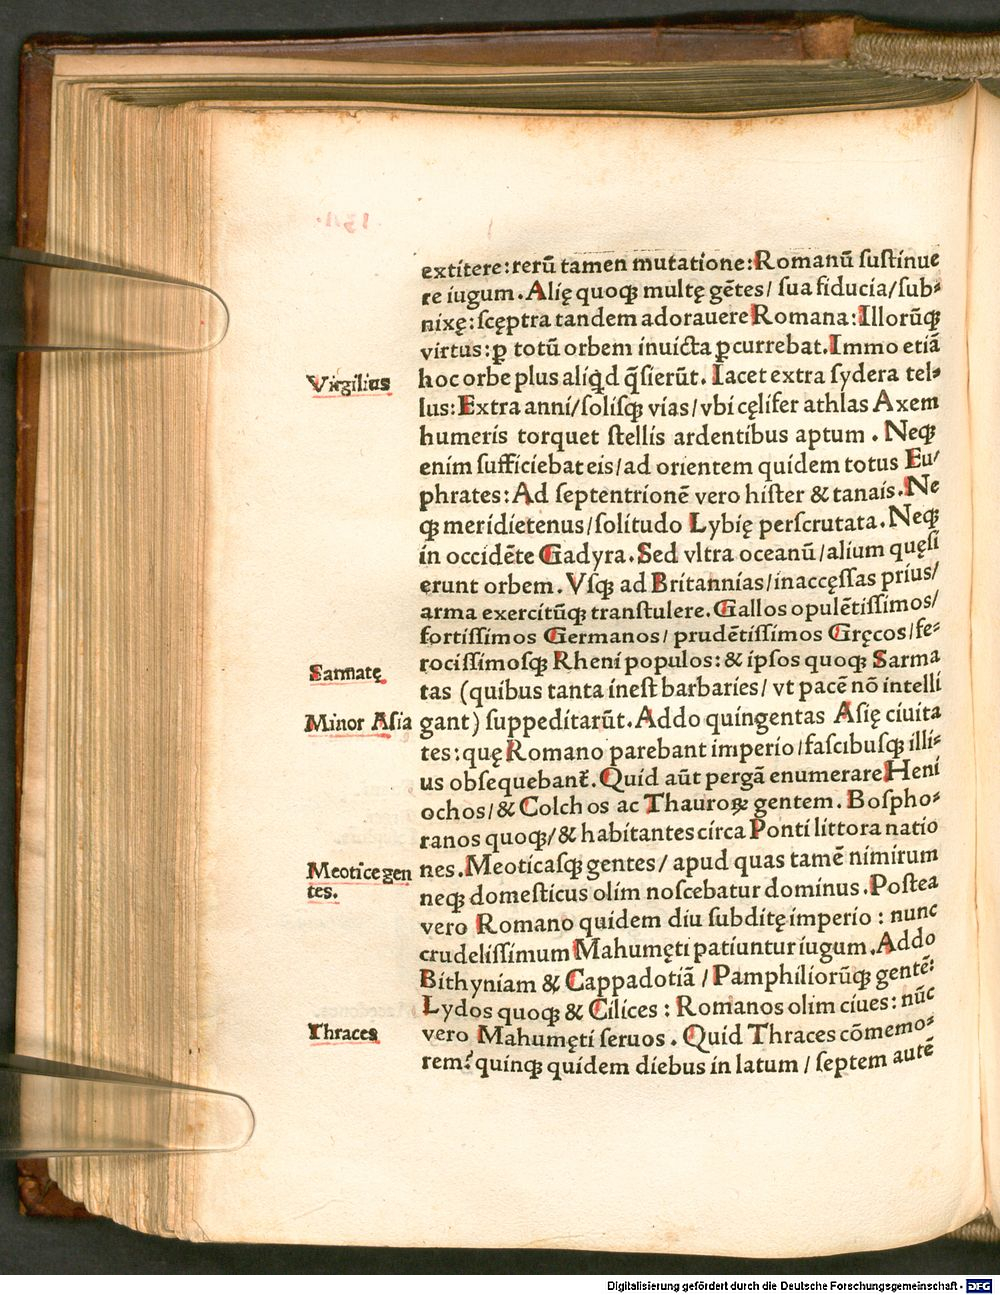 extitere:rerū tamen mutatione:Romanū ſuſtinue
re iugum.Alię quoqꝫ multę gētes/ ſua fiducia/ſub⸗
nixę:ſcęptra tandem adorauere Romana:Illorūqꝫ
virtus:ꝑ totū orbem inuicta ꝑcurrebat.Immo etiā
Virgilius
hoc orbe plus aliq̇d q̄ſierūt. Iacet extra ſydera tel⸗
lus:Extra anni/ſoliſqꝫ vias/vbi cęlifer athlas Axem
humeris torquet ſtellis ardentibus aptum . Neqꝫ
enim ſufficiebat eis/ad orientem quidem totus Eu/
phrates:Ad ſeptentrionē vero hiſter & tanais.Ne
qꝫ meridietenus/ſolitudo Lybię perſcrutata.Neqꝫ
in occidēte Gadyra.Sed vltra oceanū/alium quęſi
erunt orbem.Vſqꝫ ad Britannias/inaccęſſas prius/
arma exercitūqꝫ tranſtulere.Gallos opulētiſſimos/
fortiſſimos Germanos/ prudētiſſimos Gręcos/fe⸗
rociſſimoſqꝫ Rheni populos:& ipſos quoqꝫ Sarma
Sarmatę
tas (quibus tanta ineſt barbaries/ vt pacē nō intelli
Minor Aſia
gant) ſuppeditarūt.Addo quingentas Aſię ciuita
tes:quę Romano parebant imperio/faſcibuſqꝫ illi⸗
us obſequebant̄.Quid aūt pergā enumerare Heni
ochos/& Colchos ac Thauroꝝ gentem. Boſpho⸗
ranos quoqꝫ/& habitantes circa Ponti littora natio
Meotice gen
nes.Meoticaſqꝫ gentes/ apud quas tamē nimirum
tes.
neqꝫ domeſticus olim noſcebatur dominus.Poſtea
vero Romano quidem diu ſubditę imperio : nunc
crudeliſſimum Mahumęti patiuntur iugum.Addo
Bithyniam & Cappadotiā / Pamphiliorūqꝫ gentē:
Lydos quoqꝫ & Cilices : Romanos olim ciues: nūc
Thraces
vero Mahumęti ſeruos . Quid Thraces cōmemo⸗
rem? quinqꝫ quidem diebus in latum / ſeptem autē
Digitalisierung gefördert durch die Deutsche Forschungsgemeinschaft - DFG